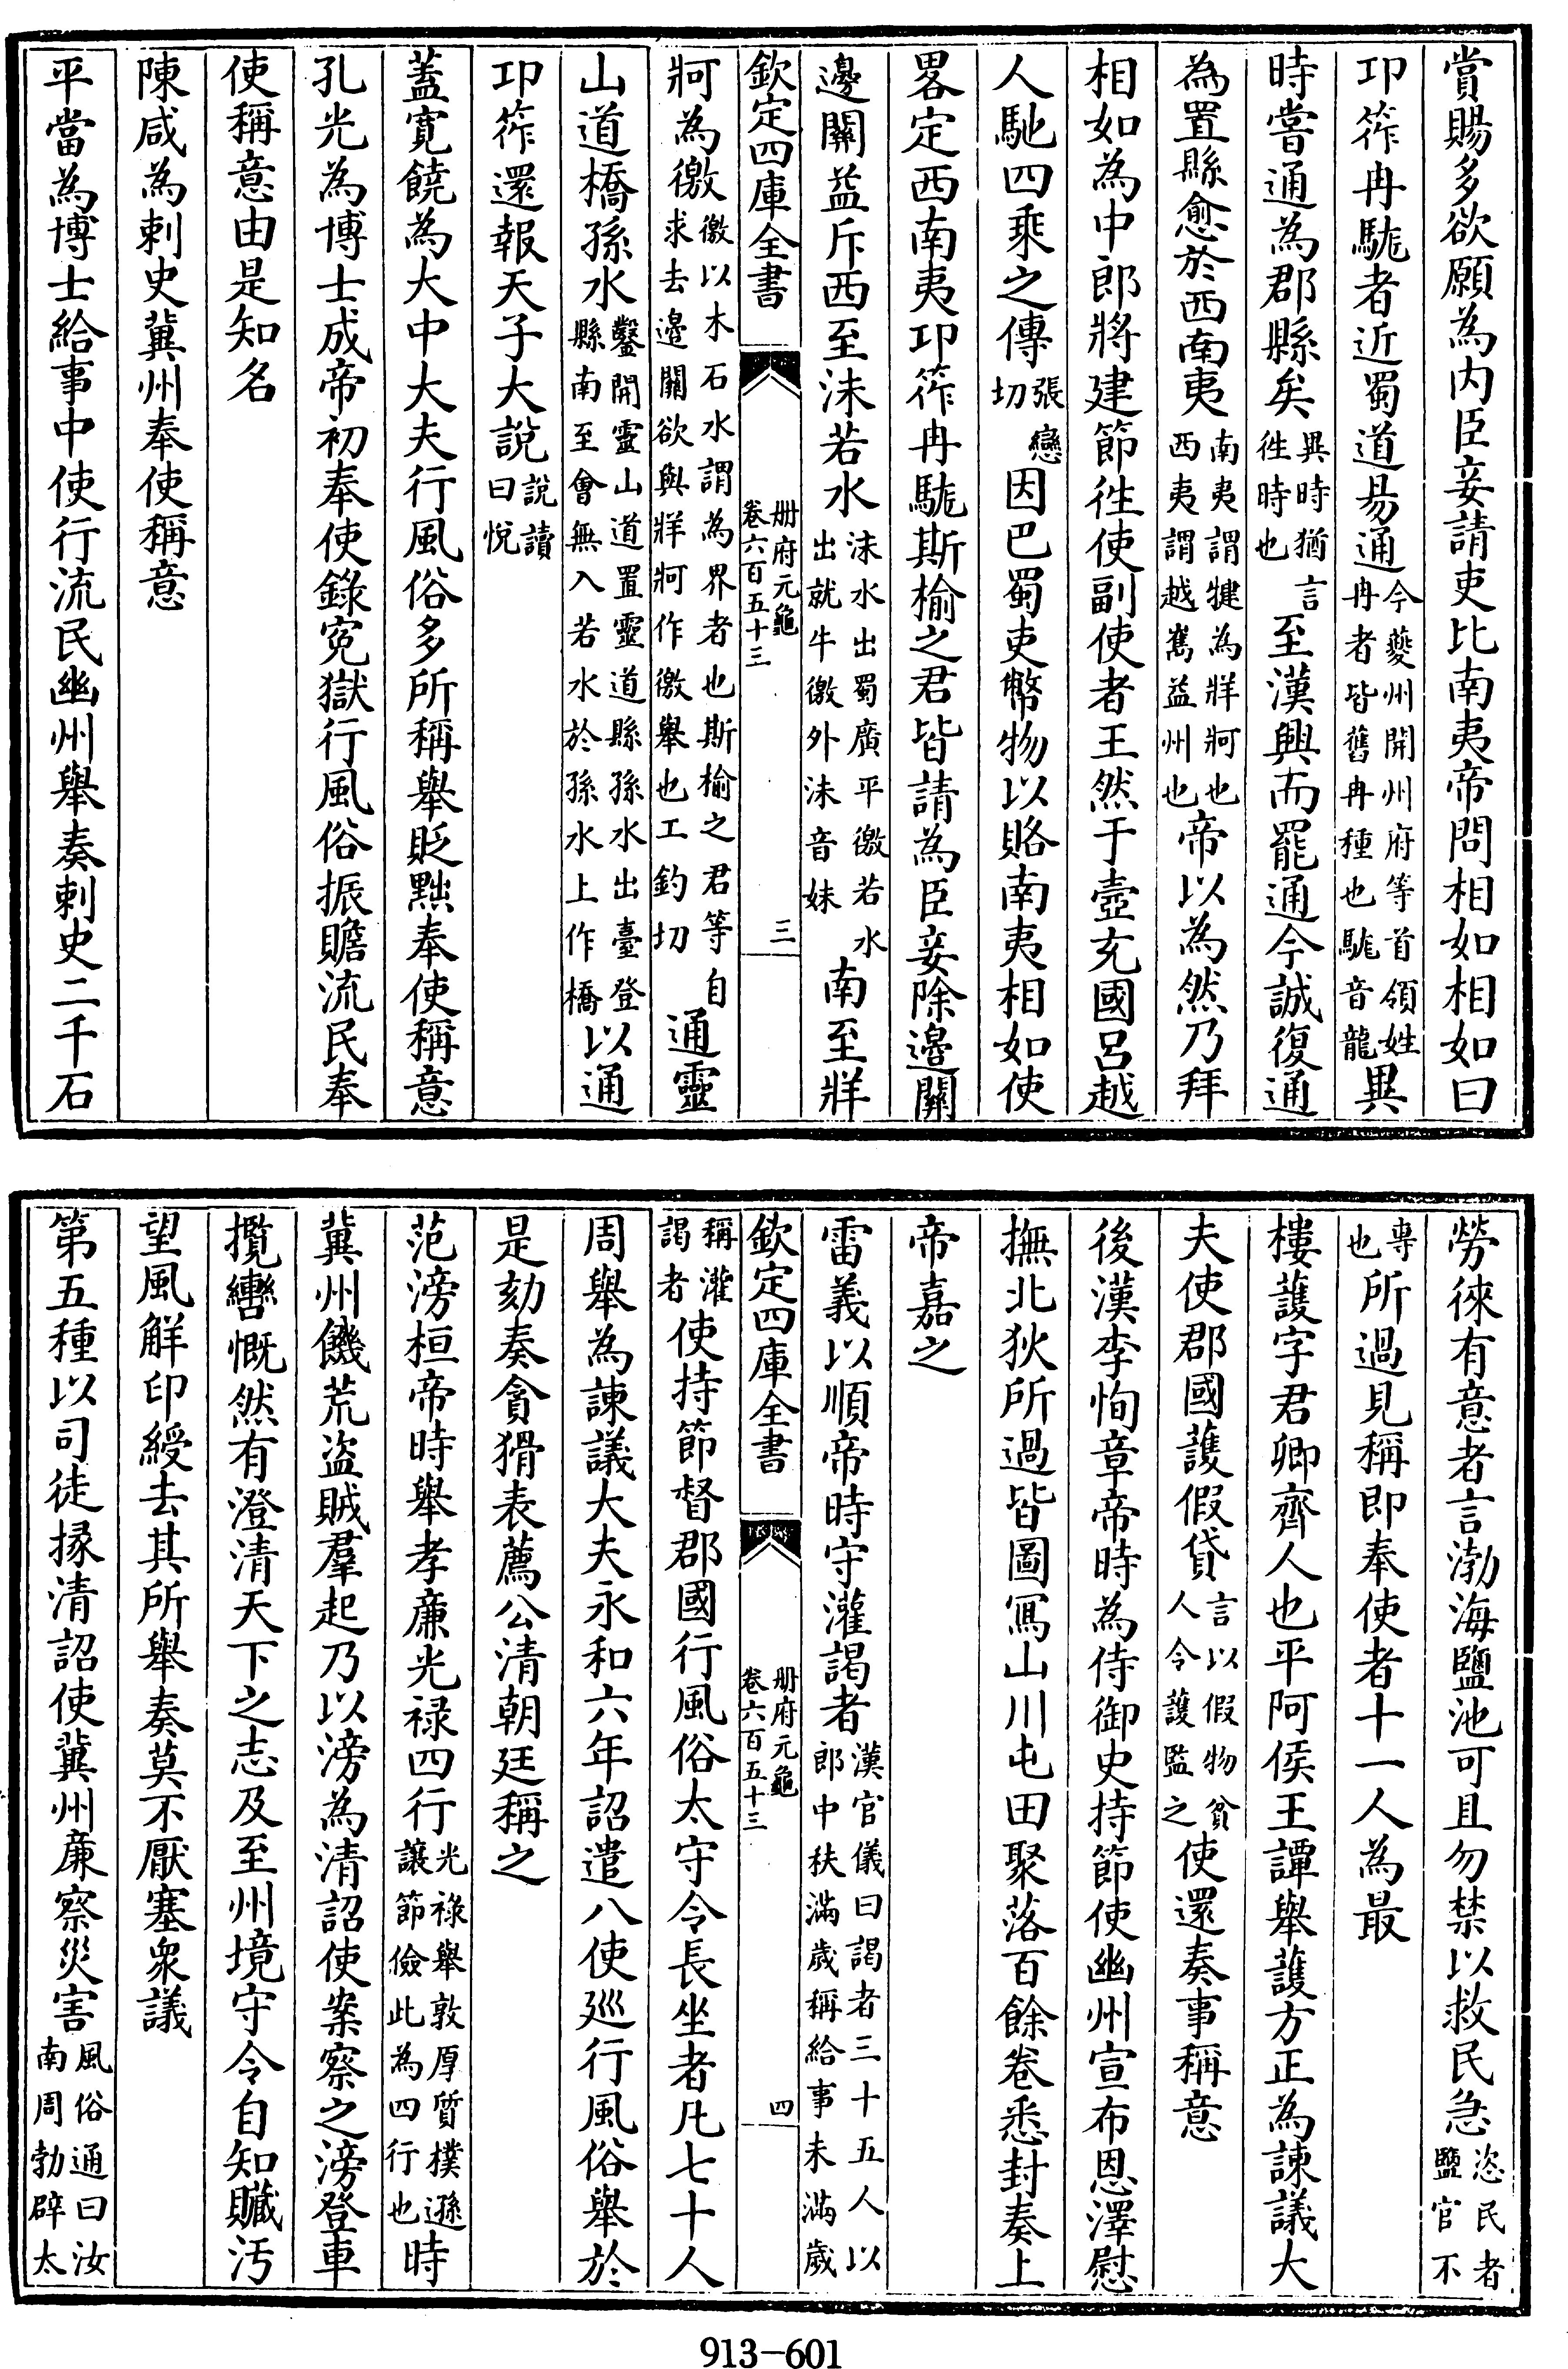 賞賜多欲願為内臣妾請吏比南夷帝問相如相如曰
卭筰冉駹者近蜀道易通今夔州開州府等首領姓冉者皆舊冉種也駹音龍異
時嘗通為郡縣矣異時猶言徃時也至漢興而罷通今誠復通
為置縣愈於西南夷南夷謂犍為牂牁也西夷謂越嶲益州也帝以為然乃拜
相如為中郎將建節徃使副使者王然于壺充國呂越
人馳四乘之傳張戀切因巴蜀吏幣物以賂南夷相如使
畧定西南夷卭筰冉駹斯榆之君皆請為臣妾除邊關
邊關益斥西至沬若水沬水出蜀廣平徼若水出就牛徼外沬音妹南至牂
欽定四庫全書
冊府元龜
卷六百五十三
三
牁為徼徼以木石水謂為界者也斯榆之君等自求去邊關欲與牂牁作徼舉也工釣切通靈
山道橋孫水鑿開靈山道置靈道縣孫水出臺登縣南至會無入若水於孫水上作橋以通
卭筰還報天子大說說讀曰悅
蓋寛饒為大中大夫行風俗多所稱舉貶黜奉使稱意
孔光為博士成帝初奉使錄寃獄行風俗振贍流民奉
使稱意由是知名
陳咸為刺史冀州奉使稱意
平當為博士給事中使行流民幽州舉奏刺史二千石
勞徠有意者言渤海鹽池可且勿禁以救民急恣民者鹽官不
專也所過見稱即奉使者十一人為最
樓護字君卿齊人也平阿侯王譚舉護方正為諫議大
夫使郡國護假貸言以假物貧人令護監之使還奏事稱意
後漢李恂章帝時為侍御史持節使幽州宣布恩澤慰
撫北狄所過皆圖寫山川屯田聚落百餘卷悉封奏上
帝嘉之
雷義以順帝時守灌謁者漢官儀曰謁者三十五人以郎中秩滿歲稱給事未滿歲
欽定四庫全書
冊府元龜
卷六百五十三
四
稱灌謁者使持節督郡國行風俗太守令長坐者凡七十人
周舉為諫議大夫永和六年詔遣八使廵行風俗舉於
是劾奏貪猾表薦公清朝廷稱之
范滂桓帝時舉孝廉光禄四行光祿舉敦厚質樸遜讓節儉此為四行也時
冀州饑荒盗賊羣起乃以滂為清詔使案察之滂登車
攬轡慨然有澄清天下之志及至州境守令自知贓汚
望風觧印綬去其所舉奏莫不厭塞衆議
第五種以司徒掾清詔使冀州廉察災害風俗通曰汝南周勃辟太
913-601